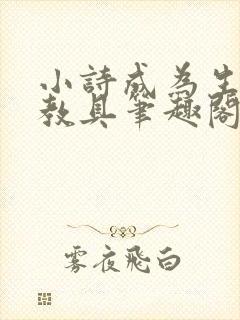 小詩成為生
教具筆趣閣
雾夜飛白